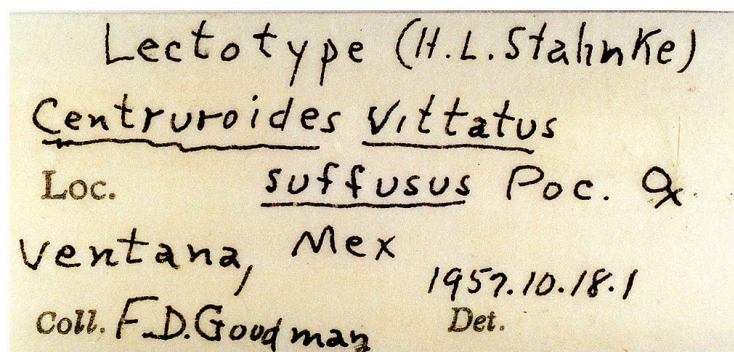 Lectotype (H.L.Stahnke)
Centruroides vittatus
Loc. suffusus Poc. ♀
Ventana, Mex
1957.10.18.1
Coll. F.D.Goodman Det.